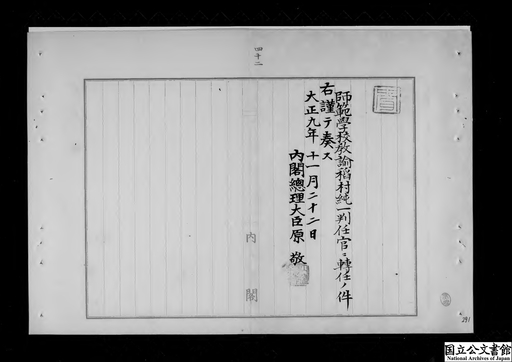 四十二
師範學校教諭稻村純一判任官ニ轉任ノ件
右謹テ奏ス
大正九年十一月二十二日
內閣總理大臣原敬
內閣
291
国立公文書館
National Archives of Japan